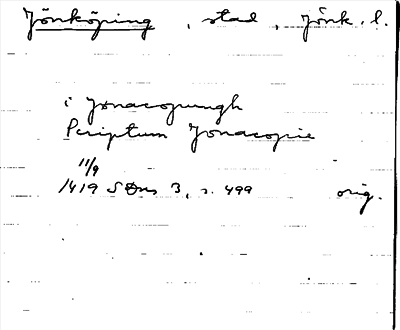 Jönköping, stad, Jönk. l.
i Jonacopungh
Scriptum Jonacopie
11/9
1419 SDns 3, s. 499 orig.